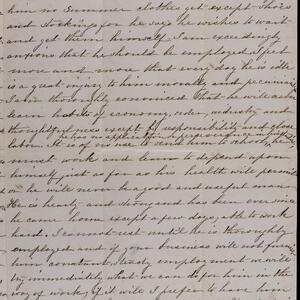 him no Summer clothes yet except Shoes
and Stockings for he says he wishes to wait
and get them himself. I am exceedingly
anxious that he should be employed I feel
more and more that every day he is idle
is a great injury to him morally and
I am thoroughly convinced that he will
learn habits of economy, order, industry
thoughtfulness except by responsibility and
labor. It is of no use to send him to school he
must work and learn to depend upon
himself just as far as his health will permit
or he will never be a good and useful man.
He is hearty and strong and has been ever since
he came home except a few days, able to work
hard. I cannot rest until he is thoroughly
employed and if your business will not furnish
him constant, steady employment we will
try immediately what we can do for him in the
way of work, if it will I prefer to have him